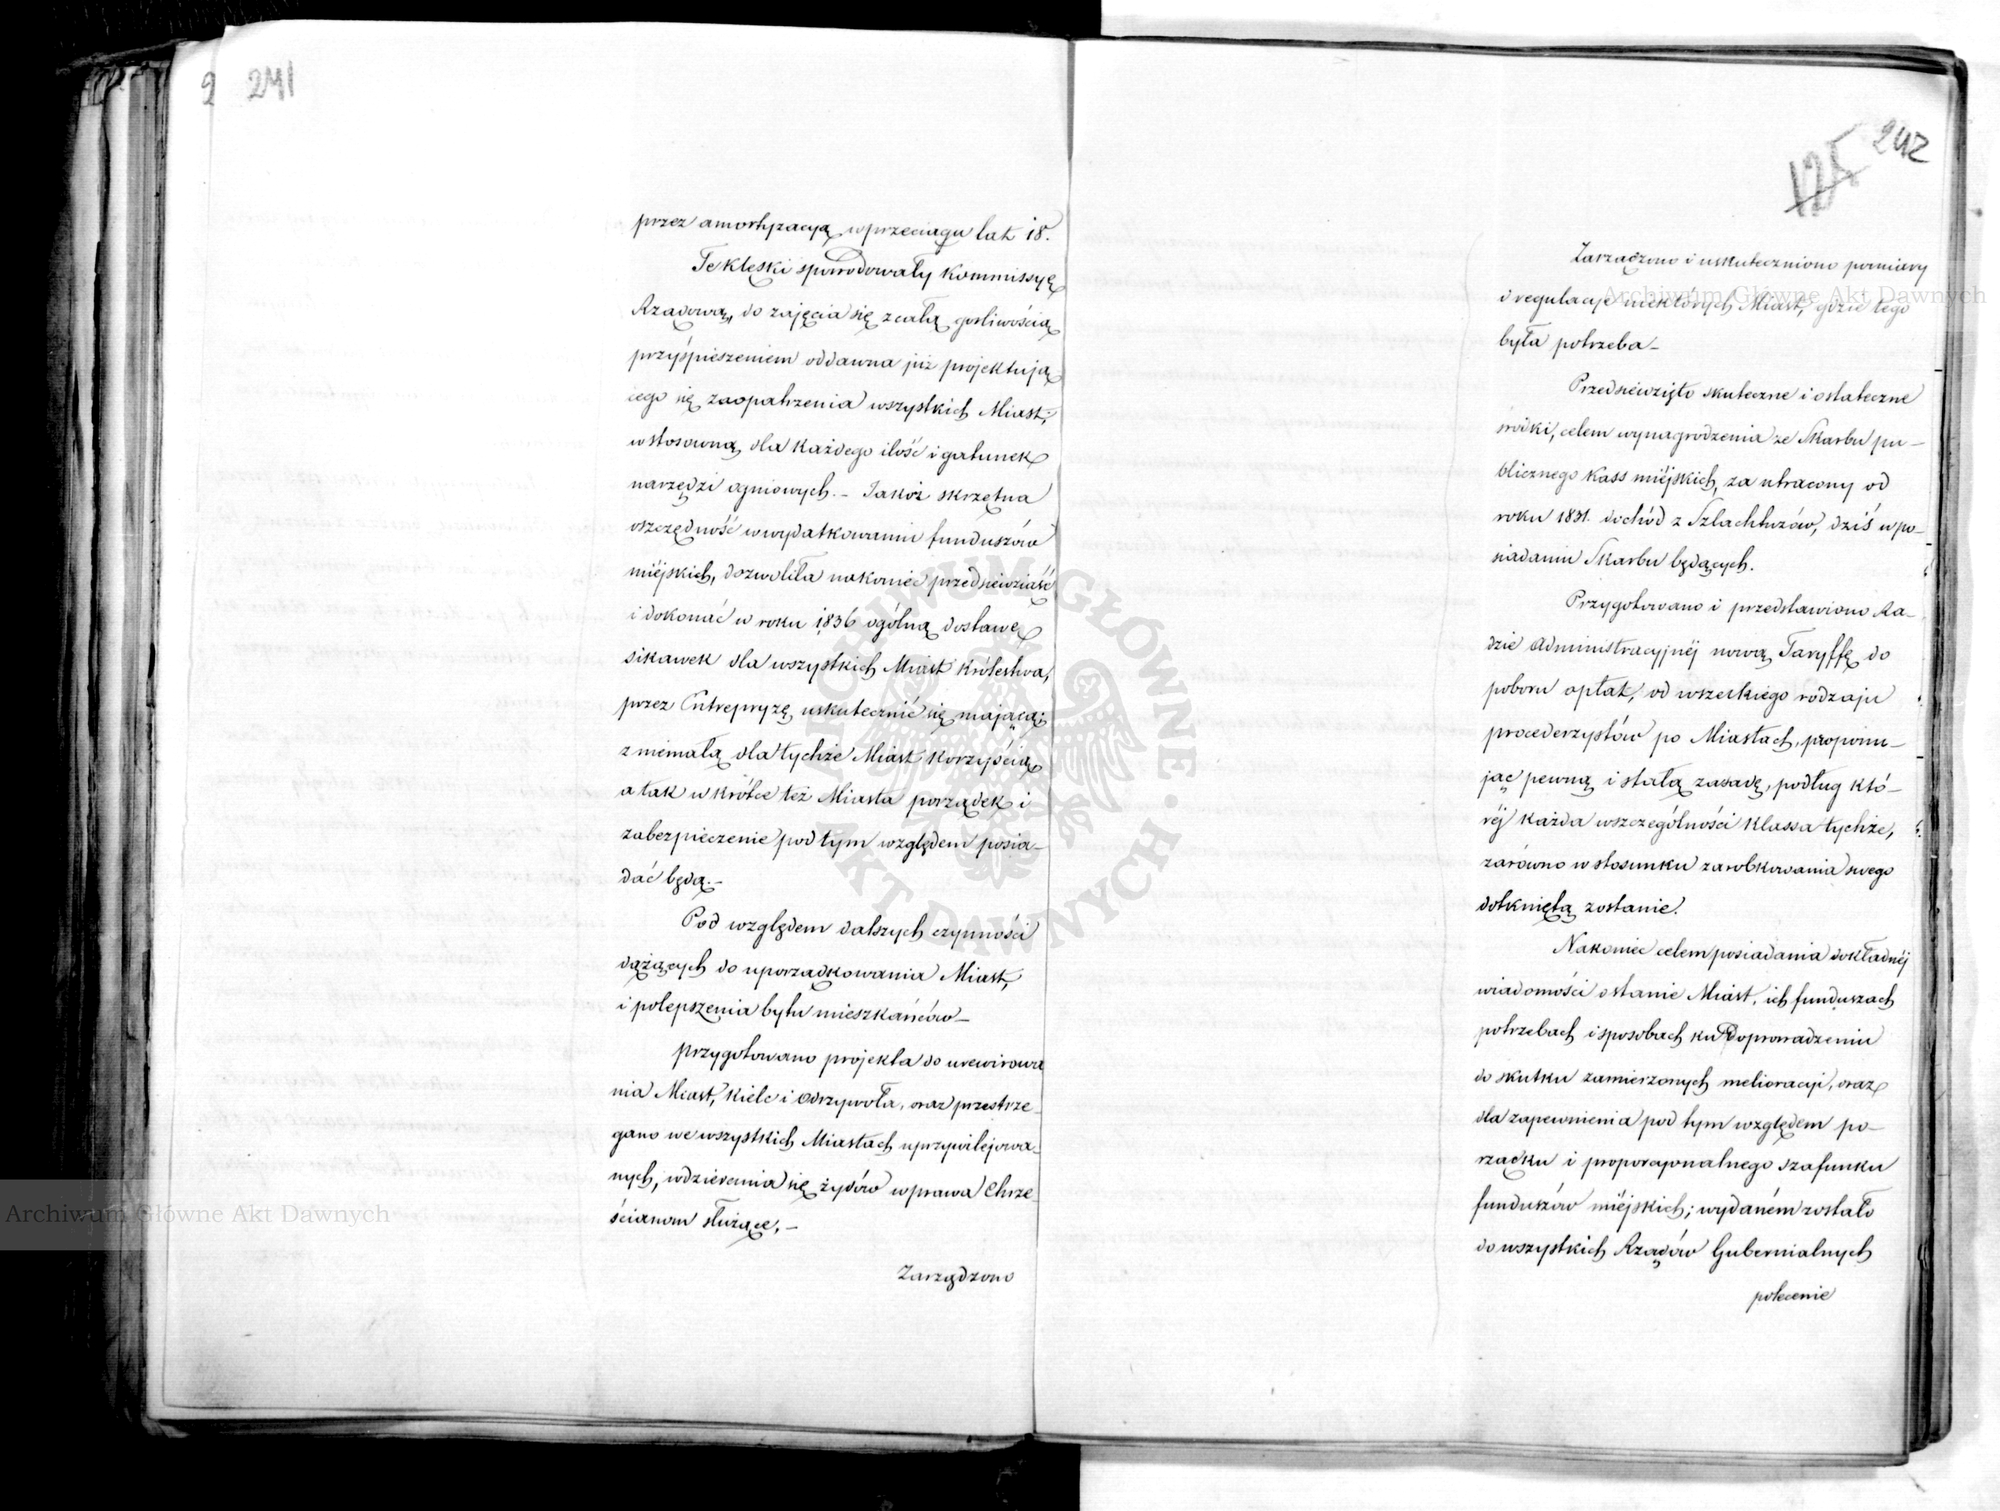 241
przez amortyzacyą w przeciągu lat 18.
Te klęski spowodowały Kommissyę
Rządową, do zajęcia się z całą gorliwością
przyśpieszeniem oddawna już projektują
cego się zaopatrzenia wszystkich Miast,
w stosowną dla każdego ilość i gatunek
narzędzi ogniowych. – Jakoż skrzętna
oszczędność w wydatkowaniu funduszów
miéjskich, dozwoliła nakoniec przedsiewziąść
i dokonać w roku 1836 ogólną dostawę
sikawek dla wszystkich Miast Królestwa,
przez Entrepryzę uskutecznić się mającą;
z niemałą dla tychże Miast korzyścią
a tak wkrótce też Miasta porządek i
zabezpieczenie pod tym względem posia–
dać będą. –
Pod względem dalszych czynności
dążących do uporządkowania Miast,
i polepszenia bytu mieszkańców –
przygotowano projekta do urewirowa
nia Miast, Kielc i Odrzywoła, oraz przestrze–
gano we wszystkich Miastach uprzywilejowa–
nych, wdzierania się żydów w prawa Chrze–
ścianom służące, –
Zarządzono
242
125
Zarządzono i uskuteczniono pomiary
i regulacje niektórych Miast, gdzie tego
była potrzeba –
Przedsiewzięto skuteczne i ostateczne
środki, celem wynagrodzenia ze Skarbu pu–
blicznego kass miéjskich, za utracony od
roku 1831. dochód z Szlachtuzów, dziś w po–
siadaniu Skarbu będących.
Przygotowano i przedstawiono Ra–
dzie Administracyjnéj nową Taryffę do
poboru opłat, od wszelkiego rodzaju
procederzystów po Miastach, proponu–
jąc pewną i stałą zasadę, podług któ–
réj każda wszczególności klassa tychże,
zarówno w stosunku zarobkowania swego
dotkniętą zostanie.
Nakoniec celem posiadania dokładnéj
wiadomości o stanie Miast, ich funduszach
potrzebach i sposobach ku doprowadzeniu
do skutku zamierzonych melioracyi, oraz
dla zapewnienia pod tym względem po–
rządku i proporcyonalnego szafunku
funduszów miéjskich; wydaném zostało
do wszystkich Rządów Gubernialnych
polecenie
Archiwum Główne Akt Dawnych
Archiwum Główne Akt Dawnych
ARCHIWUM GŁÓWNE AKT DAWNYCH